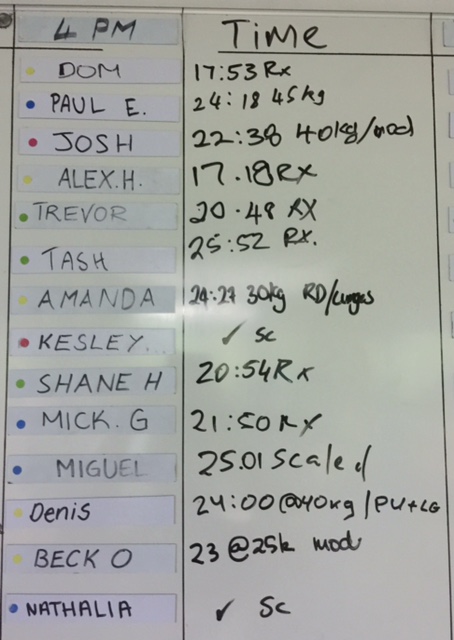 4 PM Time
DOM 17:53 Rx
PAUL E. 24:18 45kg
JOSH 22:38 40kg/mod
ALEX.H. 17.18 RX
TREVOR 20.48 RX
TASH 25:52 RX.
AMANDA 24:27 30kg RD/lunges
KESLEY ✓ Sc
SHANE H 20:54 Rx
MICK. G 21:50 RX
MIGUEL 25.01 Scaled
Denis 24:00 @40kg / PU+LG
BECK O 23 @25k mod
NATHALIA ✓ Sc